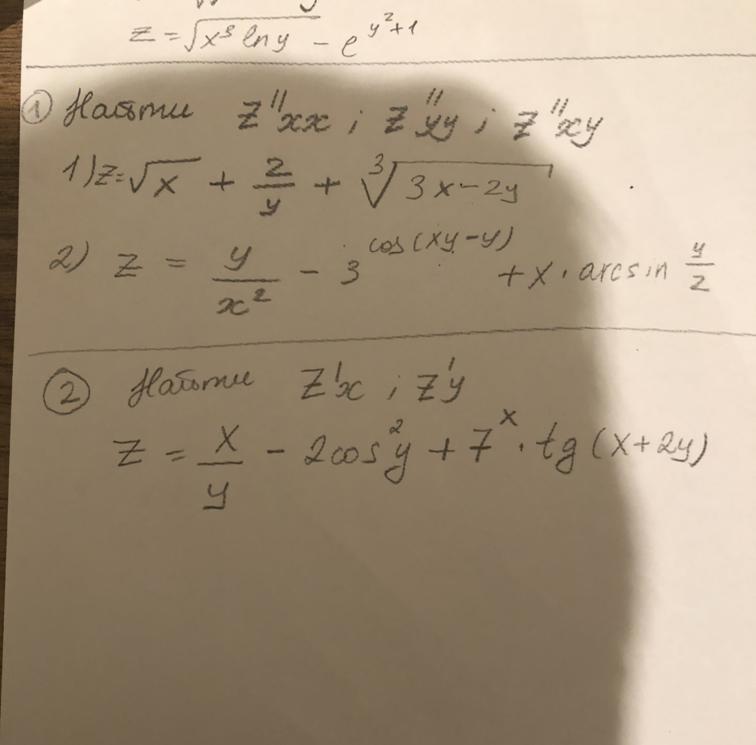 z = √(x³ ln y) - e^(y²+1)
① Найти z''xx ; z''yy ; z''xy
1) z = √x + 2/y + ∛(3x-2y)
2) z = y/x² - 3^cos(xy-y) + x · arcsin y/2
② Найти z'x ; z'y
z = x/y - 2cos²y + 7^x · tg(x+2y)